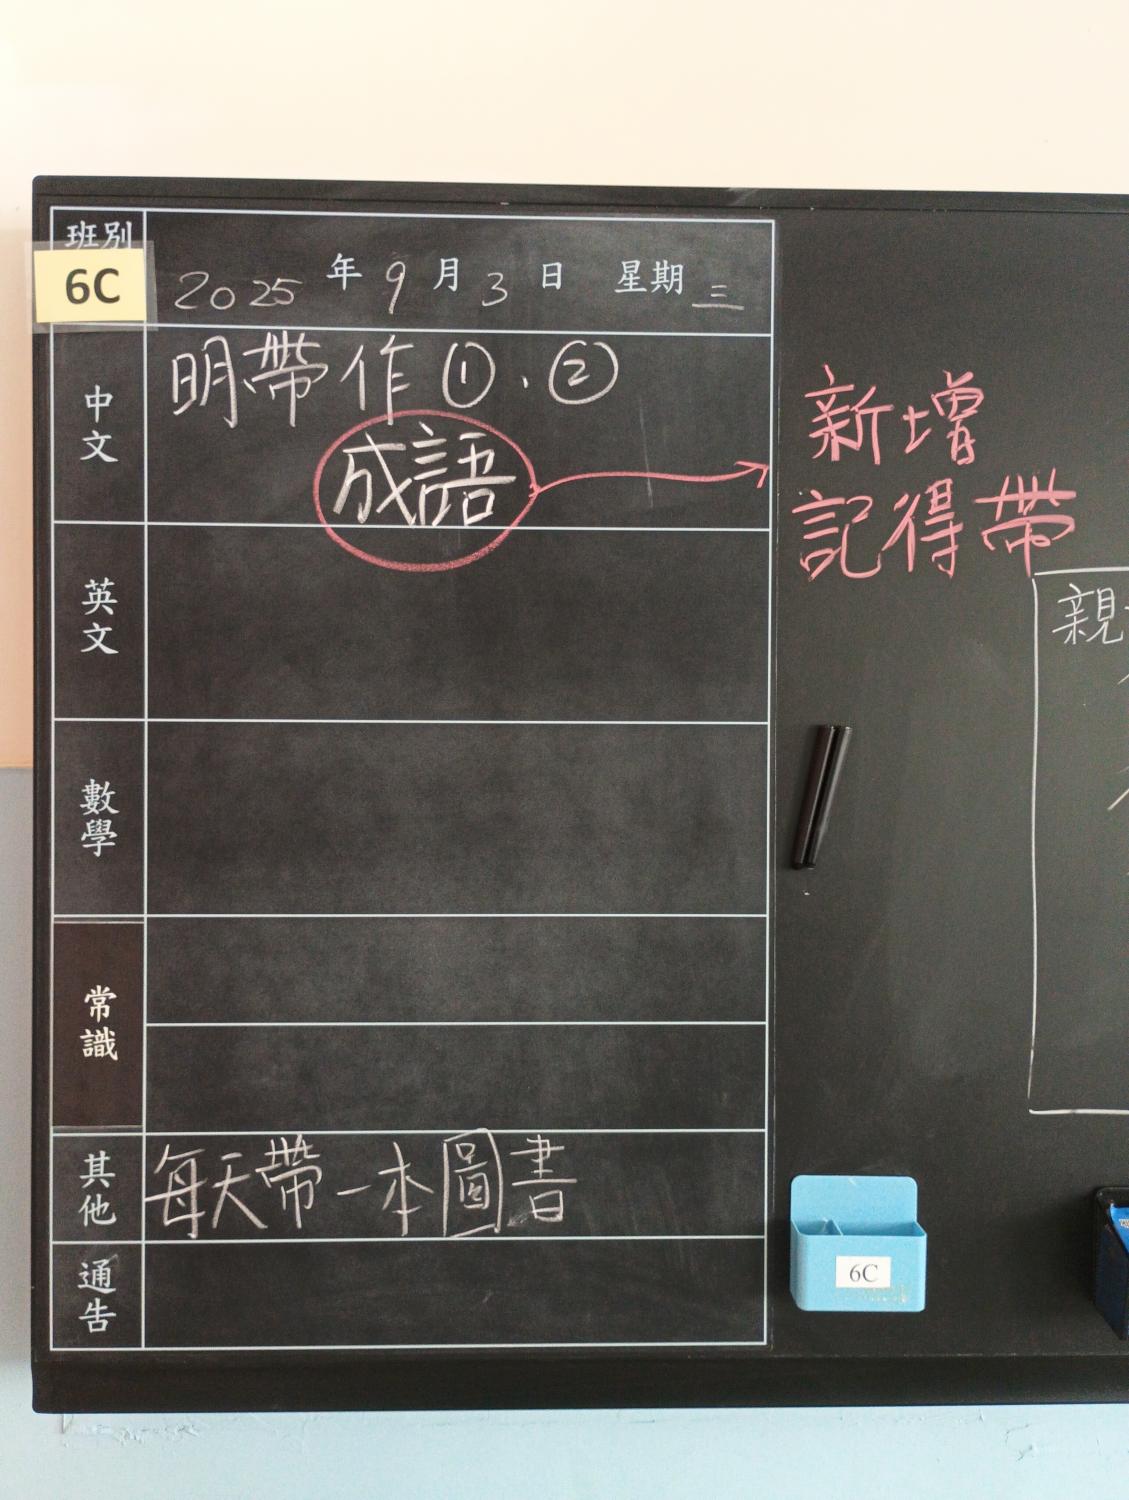 班別
6C
2025年9月3日 星期三
中文
明帶作①、②
成語
新增
記得帶
英文
數學
常識
其他
每天帶一本圖書
通告
親
6C